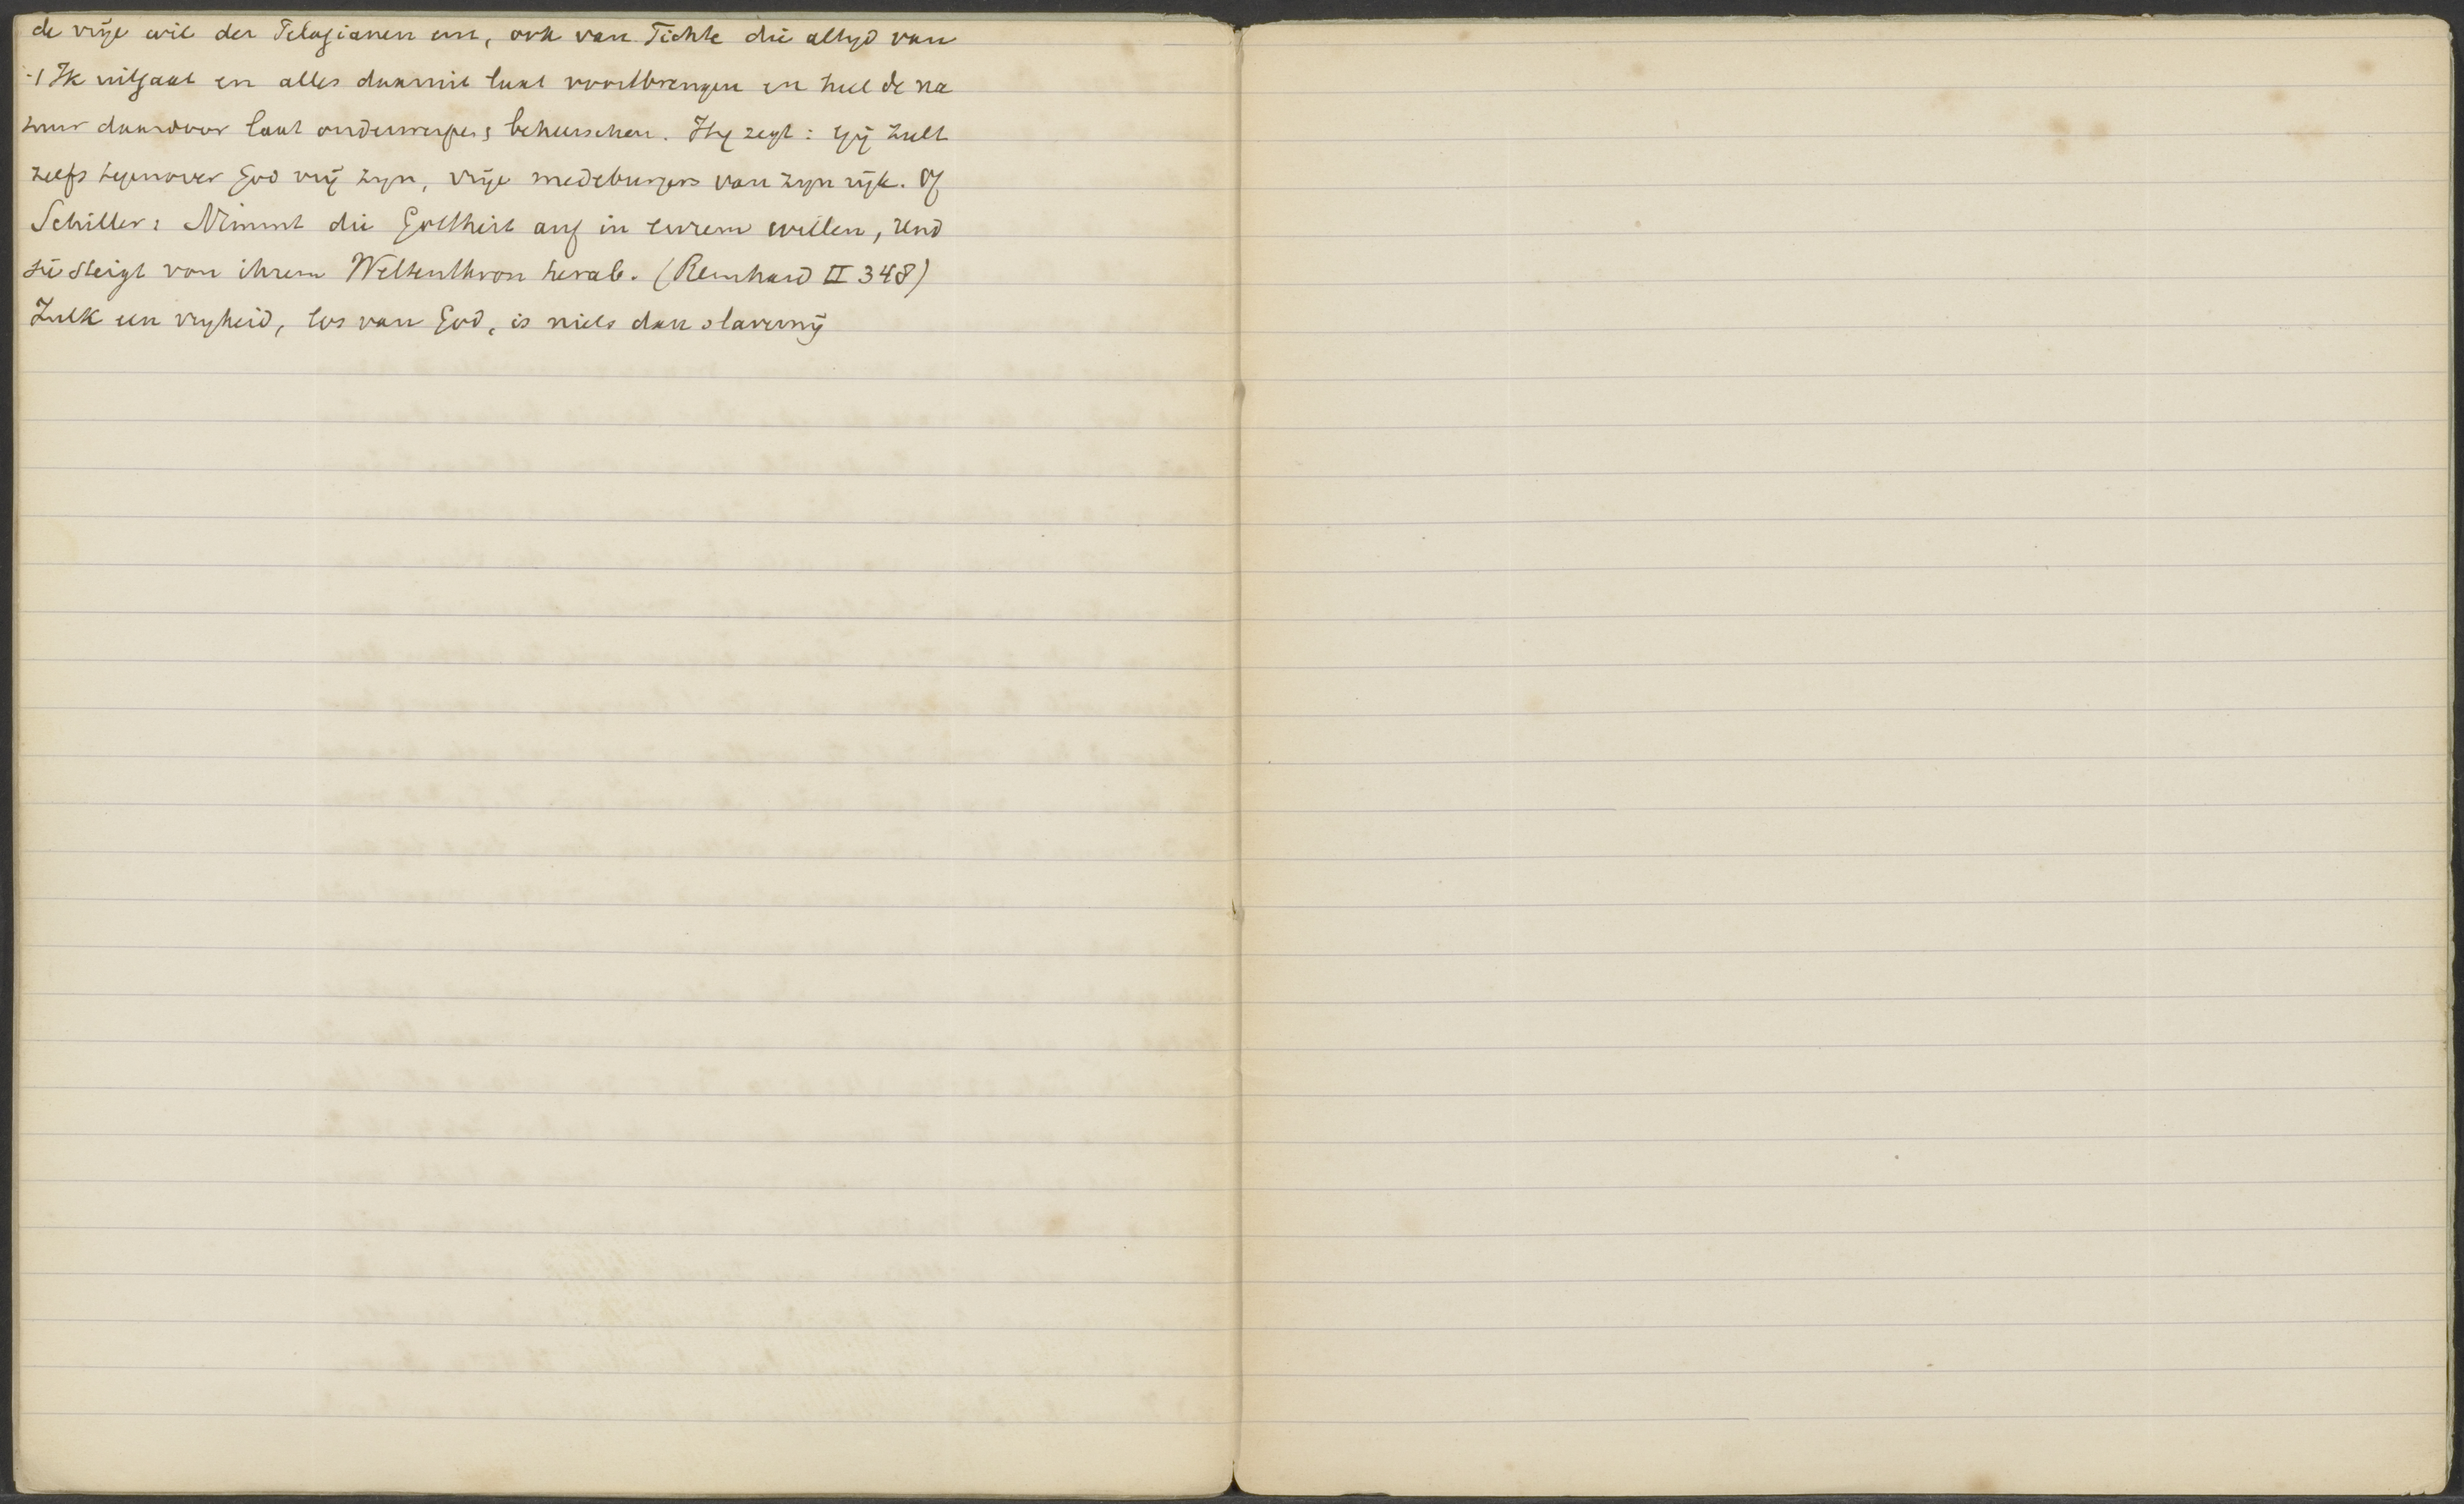 de vrije wil der Pelagianen enz, ook van Fichte die altyd van
't Ik uitgaat en alles daaruit laat voortbrengen en heel de na
tuur daardoor laat onderwerpen, beheerschen. Hij zegt: gij zult
zelfs tegenover God vrij zijn, vrije medeburgers van zijn rijk. Of
Schiller: Nimmt die Gottheit auf in eurem willen, und
sie steigt von ihrem Weltenthron herab. (Reinhard II 348)
Zulk een vryheid, los van God, is niets dan slaverny